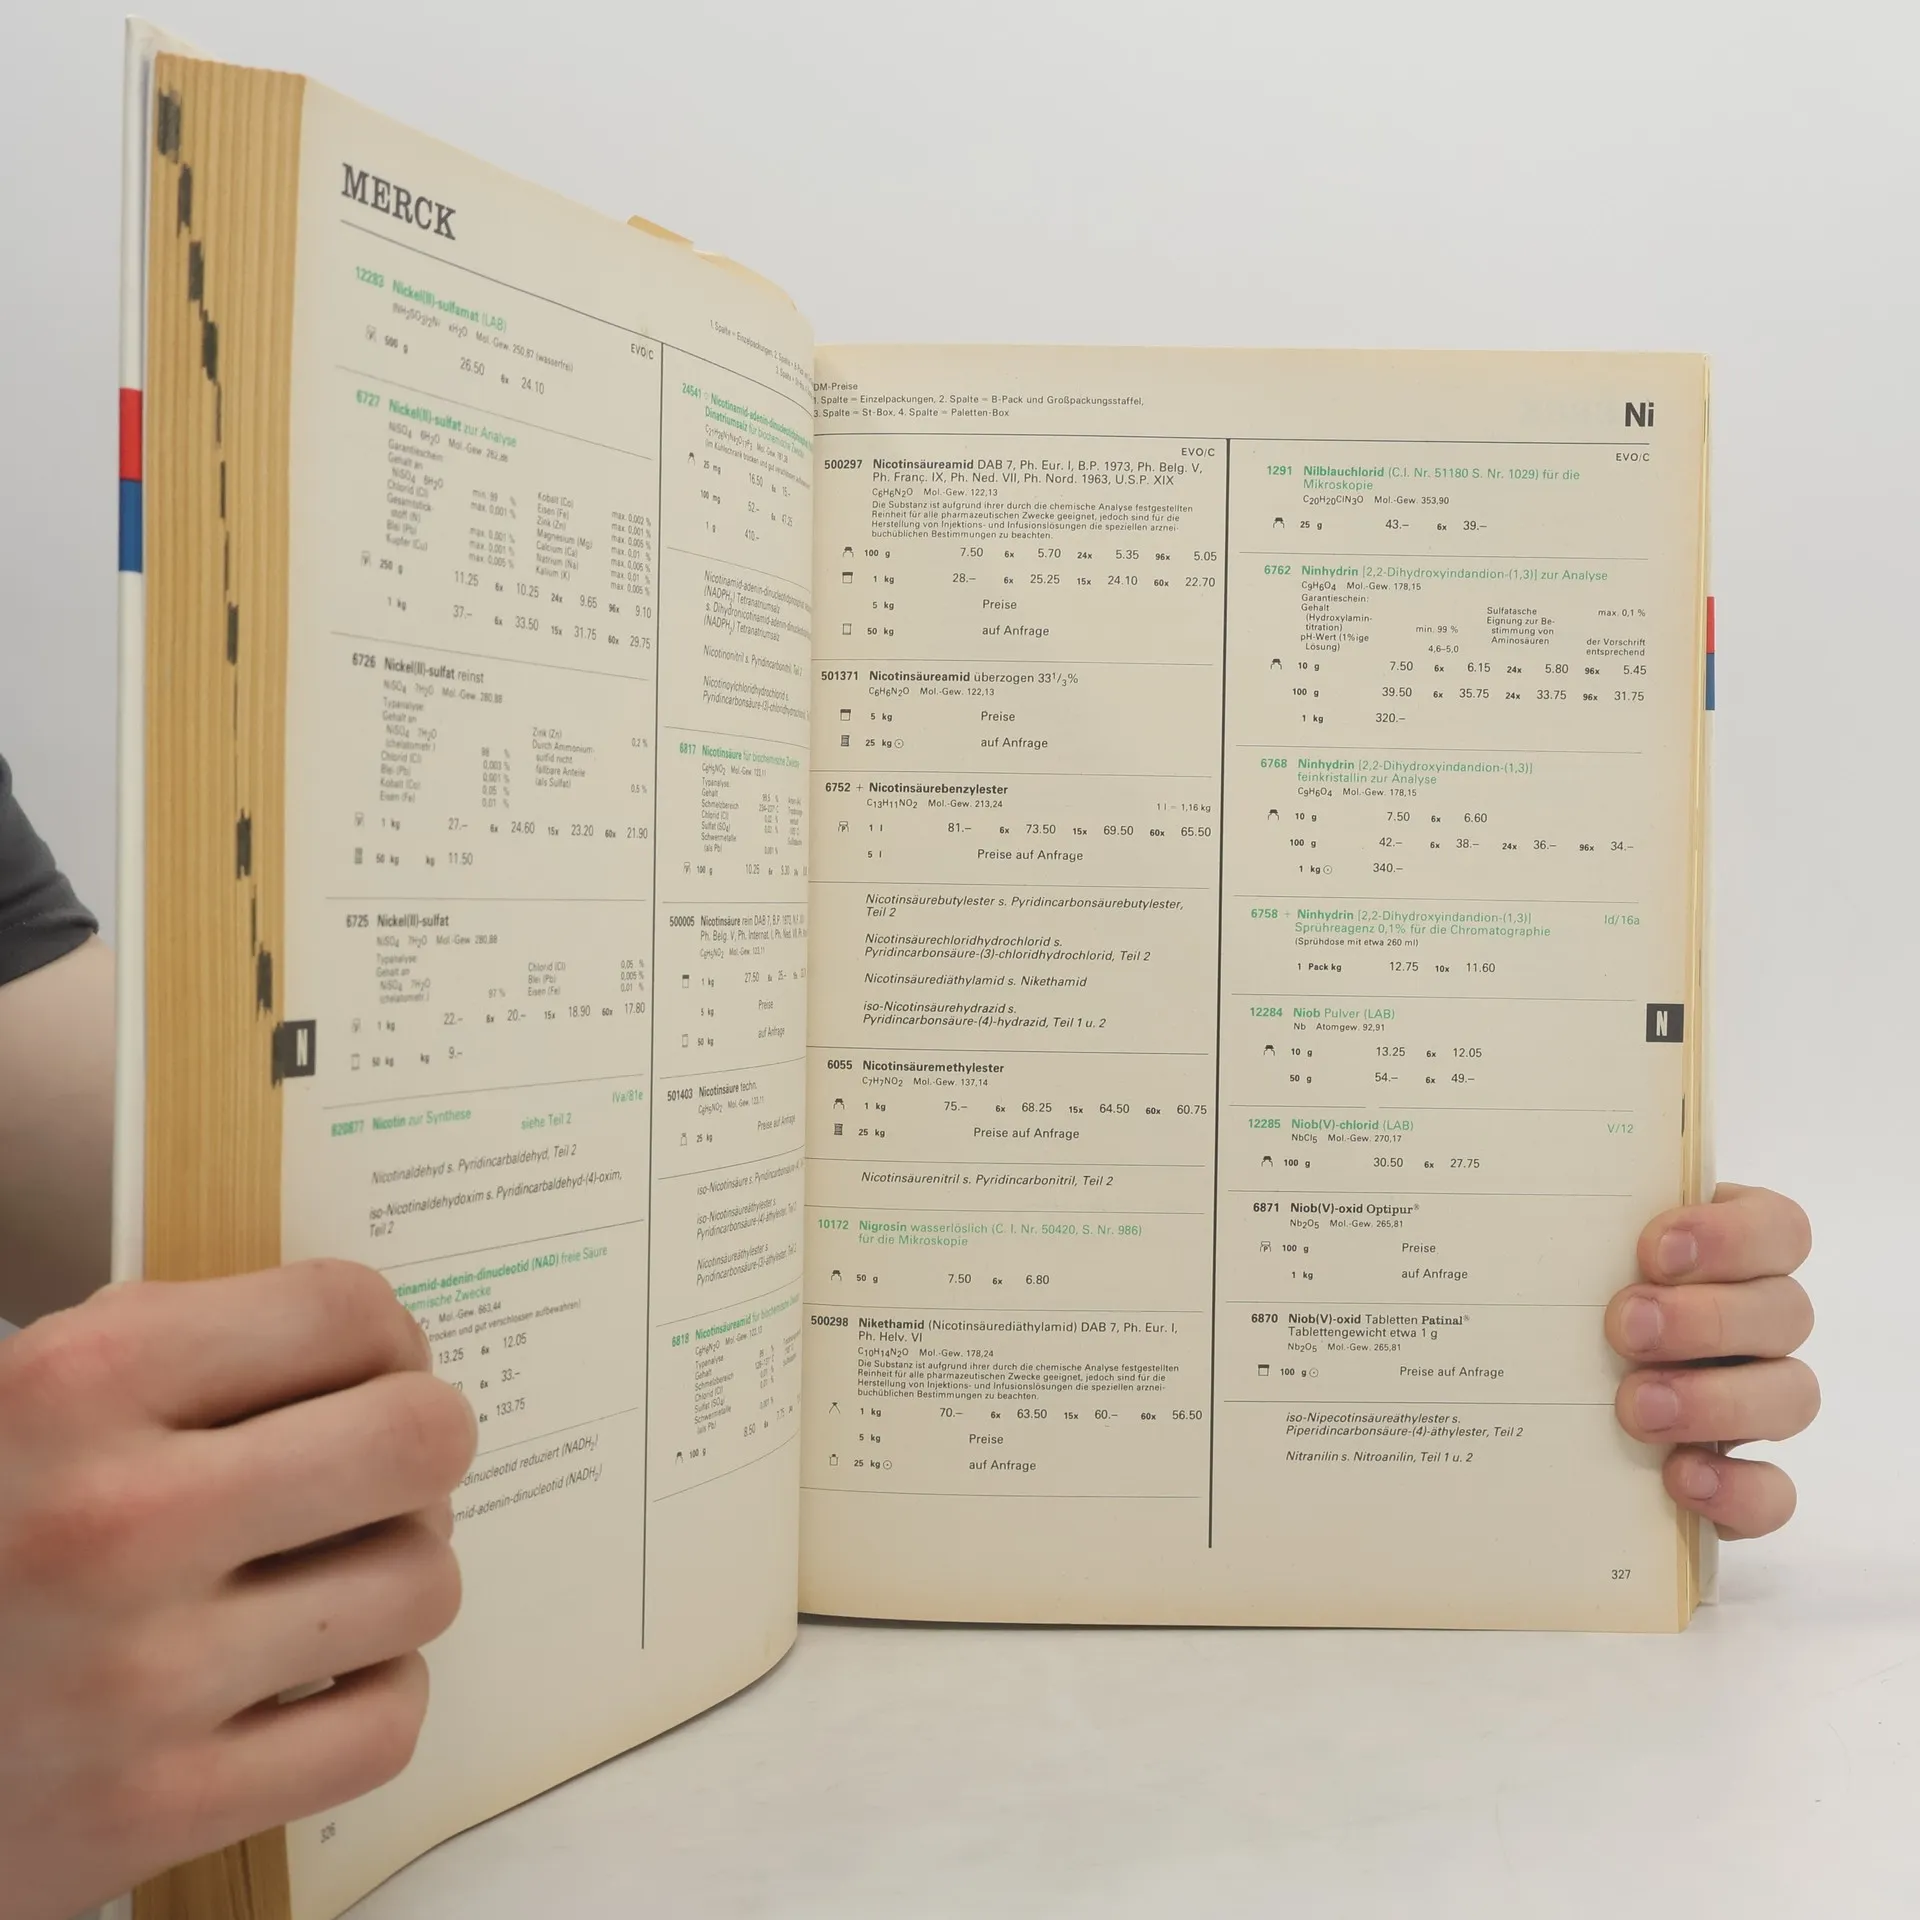 MERCK
12283 Nickel(II)-sulfamat (LAB)
(NH2SO3)2Ni · xH2O Mol.-Gew. 250,87 (wasserfrei)
EVO/C
500 g 26.50 6x 24.10
6727 Nickel(II)-sulfat zur Analyse
NiSO4 · 6H2O Mol.-Gew. 262,86
Garantieschein:
Gehalt an
NiSO4 · 6H2O min. 99 %
Chlorid (Cl) max. 0,001 %
Gesamtstick-
stoff (N) max. 0,001 %
Blei (Pb) max. 0,001 %
Kupfer (Cu) max. 0,005 %
Kobalt (Co) max. 0,002 %
Eisen (Fe) max. 0,001 %
Zink (Zn) max. 0,005 %
Magnesium (Mg) max. 0,01 %
Calcium (Ca) max. 0,005 %
Natrium (Na) max. 0,01 %
Kalium (K) max. 0,005 %
250 g 11.25 6x 10.25 24x 9.65 96x 9.10
1 kg 37.– 6x 33.50 15x 31.75 60x 29.75
6726 Nickel(II)-sulfat reinst
NiSO4 · 7H2O Mol.-Gew. 280,88
Typanalyse:
Gehalt an
NiSO4 · 7H2O
(chelatometr.) 98 %
Chlorid (Cl) 0,003 %
Blei (Pb) 0,001 %
Kobalt (Co) 0,05 %
Eisen (Fe) 0,01 %
Zink (Zn) 0,2 %
Durch Ammonium-
sulfid nicht
fällbare Anteile
(als Sulfat) 0,5 %
1 kg 27.– 6x 24.60 15x 23.20 60x 21.90
50 kg kg 11.50
6725 Nickel(II)-sulfat
NiSO4 · 7H2O Mol.-Gew. 280,88
Typanalyse:
Gehalt an
NiSO4 · 7H2O
(chelatometr.) 97 %
Chlorid (Cl) 0,05 %
Blei (Pb) 0,005 %
Eisen (Fe) 0,01 %
1 kg 22.– 6x 20.– 15x 18.90 60x 17.80
50 kg kg 9.–
N
820877 Nicotin zur Synthese IVa/81e
siehe Teil 2
Nicotinaldehyd s. Pyridincarbaldehyd, Teil 2
iso-Nicotinaldehydoxim s. Pyridincarbaldehyd-(4)-oxim,
Teil 2
tinamid-adenin-dinucleotid (NAD) freie Säure
hemische Zwecke
Mol.-Gew. 663,44
trocken und gut verschlossen aufbewahren)
13.25 6x 12.05
6x 33.–
6x 133.75
-dinucleotid reduziert (NADH2)
mid-adenin-dinucleotid (NADH2)
326
24541 Nicotinamid-adenin-dinucleotidphosphat
Dinatriumsalz für biochemische Zwecke
25 mg 16.50 6x 15.–
100 mg 52.– 6x 47.25
1 g 410.–
Nicotinamid-adenin-dinucleotidphosphat
(NADPH2) Tetranatriumsalz
s. Dihydronicotinamid-adenin-dinucleotid
(NADPH2) Tetranatriumsalz
Nicotinonitril s. Pyridincarbonitril, Teil 2
Nicotinoylchloridhydrochlorid s.
Pyridincarbonsäure-(3)-chloridhydrochlorid,
6817 Nicotinsäure für biochemische Zwecke
C6H5NO2 Mol.-Gew. 123,11
Typanalyse:
Gehalt 99,5 %
Schmelzbereich
Chlorid (Cl) 0,02 %
Sulfat (SO4) 0,02 %
Schwermetalle
(als Pb) 0,001 %
100 g 10.25
500005 Nicotinsäure rein DAB 7, B.P. 1973,
Ph. Belg. V, Ph. Internat. I, Ph. Ned.
C6H5NO2 Mol.-Gew. 123,11
1 kg 27.50 6x 25.–
5 kg Preise
50 kg auf Anfrage
501403 Nicotinsäure techn.
C6H5NO2 Mol.-Gew. 123,11
25 kg Preise auf Anfrage
iso-Nicotinsäure s. Pyridincarbonsäure-(4),
iso-Nicotinsäureäthylester s.
Pyridincarbonsäure-(4)-äthylester, Teil 2
Nicotinsäureäthylester s.
Pyridincarbonsäure-(3)-äthylester, Teil 2
6818 Nicotinsäureamid für biochemische
C6H6N2O Mol.-Gew. 122,13
Typanalyse:
Gehalt
Schmelzbereich
Chlorid (Cl)
Sulfat (SO4)
Schwermetalle
(als Pb) 0,001 %
100 g 8.50 6x 7.75
DM-Preise
1. Spalte = Einzelpackungen, 2. Spalte = B-Pack und Großpackungsstaffel,
3. Spalte = St-Box, 4. Spalte = Paletten-Box
Ni
EVO/C
500297 Nicotinsäureamid DAB 7, Ph. Eur. I, B.P. 1973, Ph. Belg. V,
Ph. Franç. IX, Ph. Ned. VII, Ph. Nord. 1963, U.S.P. XIX
C6H6N2O Mol.-Gew. 122,13
Die Substanz ist aufgrund ihrer durch die chemische Analyse festgestellten
Reinheit für alle pharmazeutischen Zwecke geeignet, jedoch sind für die
Herstellung von Injektions- und Infusionslösungen die speziellen arznei-
buchüblichen Bestimmungen zu beachten.
100 g 7.50 6x 5.70 24x 5.35 96x 5.05
1 kg 28.– 6x 25.25 15x 24.10 60x 22.70
5 kg Preise
50 kg auf Anfrage
501371 Nicotinsäureamid überzogen 33 1/3%
C6H6N2O Mol.-Gew. 122,13
5 kg Preise
25 kg ⊙ auf Anfrage
6752 + Nicotinsäurebenzylester
C13H11NO2 Mol.-Gew. 213,24 1 l = 1,16 kg
1 l 81.– 6x 73.50 15x 69.50 60x 65.50
5 l Preise auf Anfrage
Nicotinsäurebutylester s. Pyridincarbonsäurebutylester,
Teil 2
Nicotinsäurechloridhydrochlorid s.
Pyridincarbonsäure-(3)-chloridhydrochlorid, Teil 2
Nicotinsäurediäthylamid s. Nikethamid
iso-Nicotinsäurehydrazid s.
Pyridincarbonsäure-(4)-hydrazid, Teil 1 u. 2
6055 Nicotinsäuremethylester
C7H7NO2 Mol.-Gew. 137,14
1 kg 75.– 6x 68.25 15x 64.50 60x 60.75
25 kg Preise auf Anfrage
Nicotinsäurenitril s. Pyridincarbonitril, Teil 2
10172 Nigrosin wasserlöslich (C. I. Nr. 50420, S. Nr. 986)
für die Mikroskopie
50 g 7.50 6x 6.80
500298 Nikethamid (Nicotinsäurediäthylamid) DAB 7, Ph. Eur. I,
Ph. Helv. VI
C10H14N2O Mol.-Gew. 178,24
Die Substanz ist aufgrund ihrer durch die chemische Analyse festgestellten
Reinheit für alle pharmazeutischen Zwecke geeignet, jedoch sind für die
Herstellung von Injektions- und Infusionslösungen die speziellen arznei-
buchüblichen Bestimmungen zu beachten.
1 kg 70.– 6x 63.50 15x 60.– 60x 56.50
5 kg Preise
25 kg ⊙ auf Anfrage
EVO/C
1291 Nilblauchlorid (C.I. Nr. 51180 S. Nr. 1029) für die
Mikroskopie
C20H20ClN3O Mol.-Gew. 353,90
25 g 43.– 6x 39.–
6762 Ninhydrin [2,2-Dihydroxyindandion-(1,3)] zur Analyse
C9H6O4 Mol.-Gew. 178,15
Garantieschein:
Gehalt
(Hydroxylamin-
titration) min. 99 %
pH-Wert (1%ige
Lösung) 4,6–5,0
Sulfatasche max. 0,1 %
Eignung zur Be-
stimmung von
Aminosäuren der Vorschrift
entsprechend
10 g 7.50 6x 6.15 24x 5.80 96x 5.45
100 g 39.50 6x 35.75 24x 33.75 96x 31.75
1 kg 320.–
6768 Ninhydrin [2,2-Dihydroxyindandion-(1,3)]
feinkristallin zur Analyse
C9H6O4 Mol.-Gew. 178,15
10 g 7.50 6x 6.60
100 g 42.– 6x 38.– 24x 36.– 96x 34.–
1 kg ⊙ 340.–
6758 + Ninhydrin [2,2-Dihydroxyindandion-(1,3)] Id/16a
Sprühreagenz 0,1% für die Chromatographie
(Sprühdose mit etwa 260 ml)
1 Pack kg 12.75 10x 11.60
12284 Niob Pulver (LAB)
Nb Atomgew. 92,91
10 g 13.25 6x 12.05
50 g 54.– 6x 49.–
N
12285 Niob(V)-chlorid (LAB) V/12
NbCl5 Mol.-Gew. 270,17
100 g 30.50 6x 27.75
6871 Niob(V)-oxid Optipur®
Nb2O5 Mol.-Gew. 265,81
100 g Preise
1 kg auf Anfrage
6870 Niob(V)-oxid Tabletten Patinal®
Tablettengewicht etwa 1 g
Nb2O5 Mol.-Gew. 265,81
100 g ⊙ Preise auf Anfrage
iso-Nipecotinsäureäthylester s.
Piperidincarbonsäure-(4)-äthylester, Teil 2
Nitranilin s. Nitroanilin, Teil 1 u. 2
327